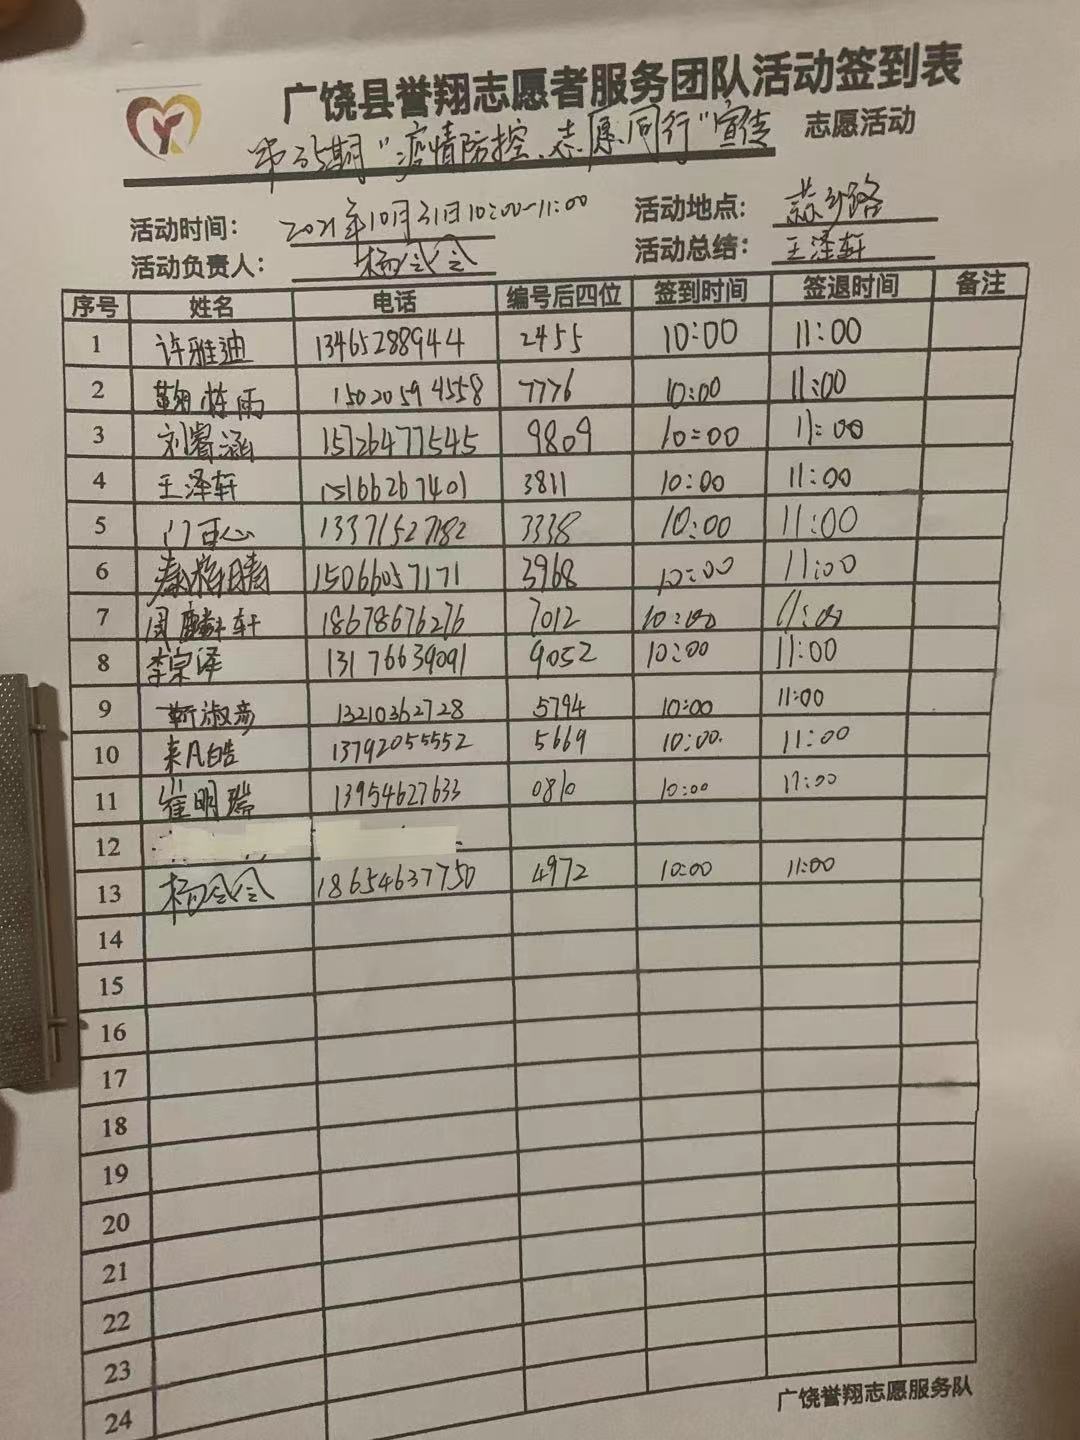 广饶县誉翔志愿者服务团队活动签到表
第35期"疫情防控、志愿同行"宣传 志愿活动
活动时间: 2021年10月31日10:00-11:00 活动地点: 乡路
活动负责人: 杨会会 活动总结: 王泽轩
序号 姓名 电话 编号后四位 签到时间 签退时间 备注
1 许雅迪 13465288944 2455 10:00 11:00
2 鞠栋雨 15020594558 7776 10:00 11:00
3 刘睿涵 15726477545 9809 10:00 11:00
4 王泽轩 15166267401 3811 10:00 11:00
5 门百心 13371527182 3338 10:00 11:00
6 秦 15066057171 3968 10:00 11:00
7 周麟轩 18678676276 7012 10:00 11:00
8 李宗泽 13176639091 9052 10:00 11:00
9 靳淑彦 13210362728 5794 10:00 11:00
10 来凡皓 13792055552 5669 10:00. 11:00
11 崔明瑞 13954627633 0810 10:00 11:00
12
13 杨会会 18654637750 4972 10:00 11:00
14
15
16
17
18
19
20
21
22
23
24
广饶誉翔志愿服务队